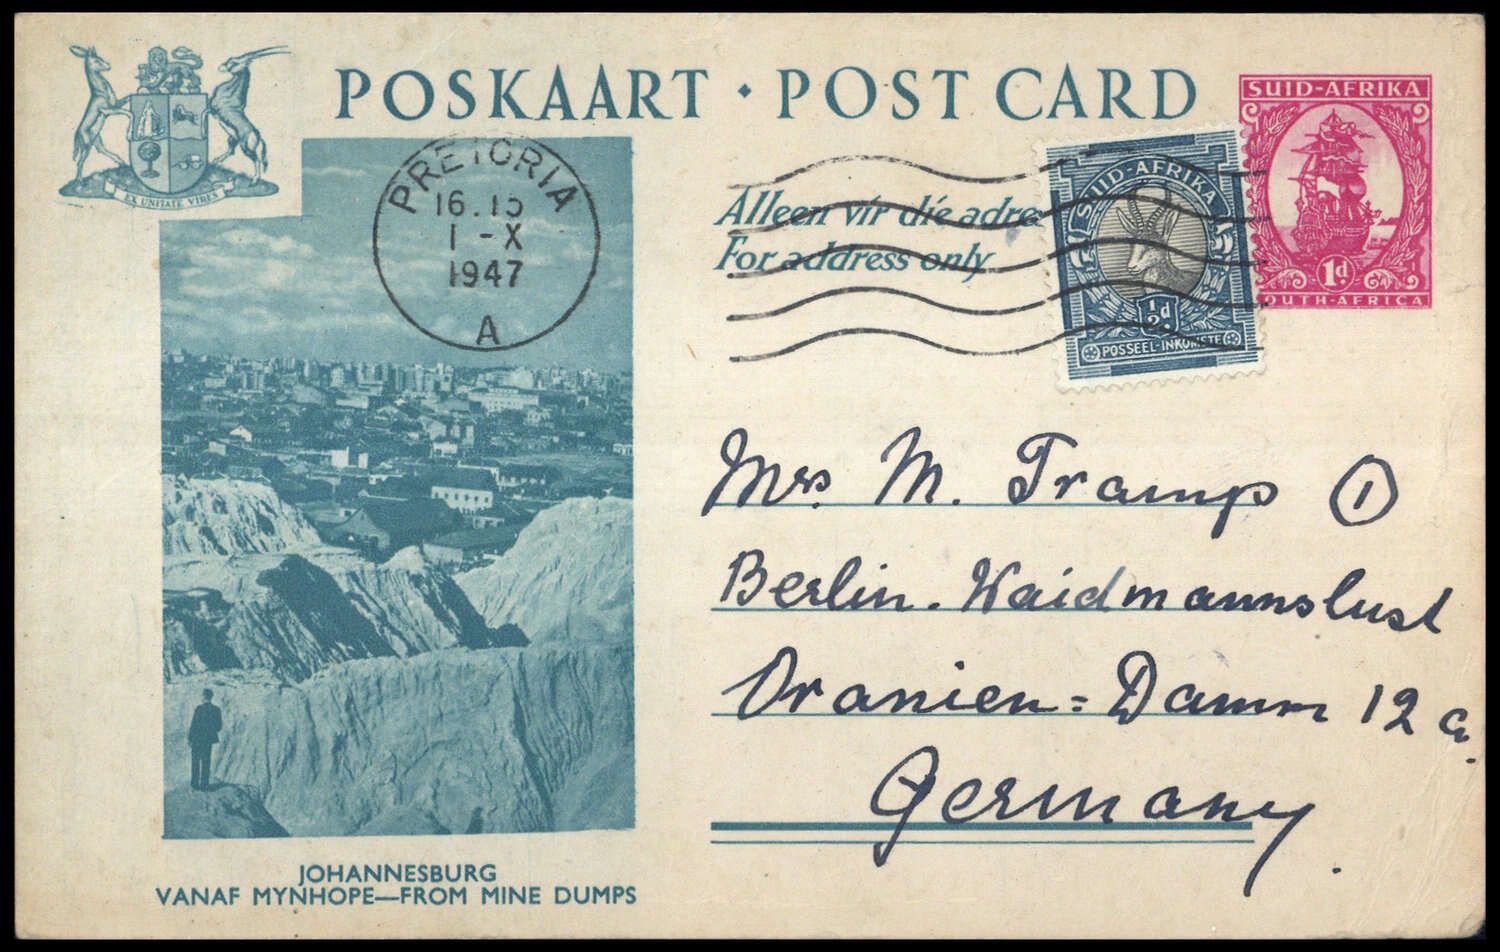 POSKAART · POST CARD
EX UNITATE VIRES
PRETORIA
16.15
1-X
1947
A
SUID-AFRIKA
1d.
OUTH-AFRICA
SUID-AFRIKA
½d
POSSEEL-INKOMSTE
Alleen vir die adre
For address only
Mrs M. Tramp ①
Berlin-Waidmannslust
Oranien=Damm 12 a.
Germany.
JOHANNESBURG
VANAF MYNHOPE—FROM MINE DUMPS